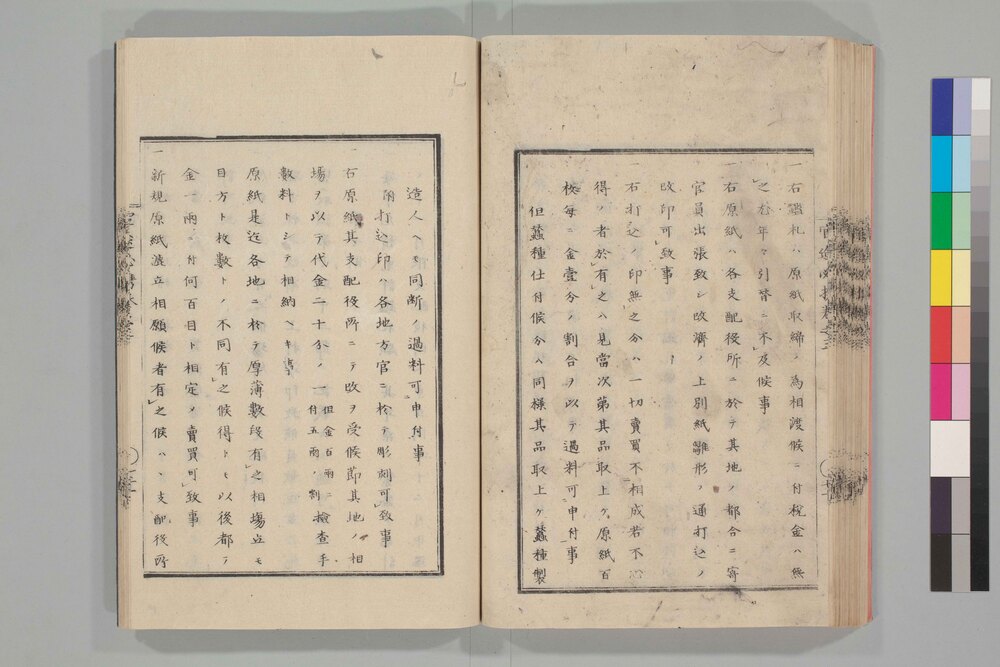 一右鑑札ハ原紙取締ノ為相渡候ニ付税金ハ無
之尤年々引替ニ不及候事
一右原紙ハ各支配役所ニ於テ其地ノ都合ニ寄
官員出張致シ改済ノ上別紙雛形ノ通打込ノ
改印可致事
一右打込ノ印無之分ハ一切賣買不相成若不心
得ノ者於有之ハ見當次第其品取上ケ原紙百
枚毎ニ金壹分ノ割合ヲ以テ過料可申付事
但蚕種仕付候分ハ同様其品取上ケ蚕種製
造人ヘモ同断ノ過料可申付事
打込印ハ各地方官ニ於テ彫刻可致事
一右原紙其支配役所ニテ改ヲ受候節其地ノ相
場ヲ以テ代金二十分ノ一 但金百両ニ付五両ノ割 檢査手
數料トシテ相納ヘキ事
一原紙是迄各地ニ於テ厚薄數段有之相場立モ
目方ト枚數トノ不同有之候得トモ以後都テ
金一両ニ付何百目ト相定メ賣買可致事
一新規原紙漉立相願候者有之候ハヽ支配役所